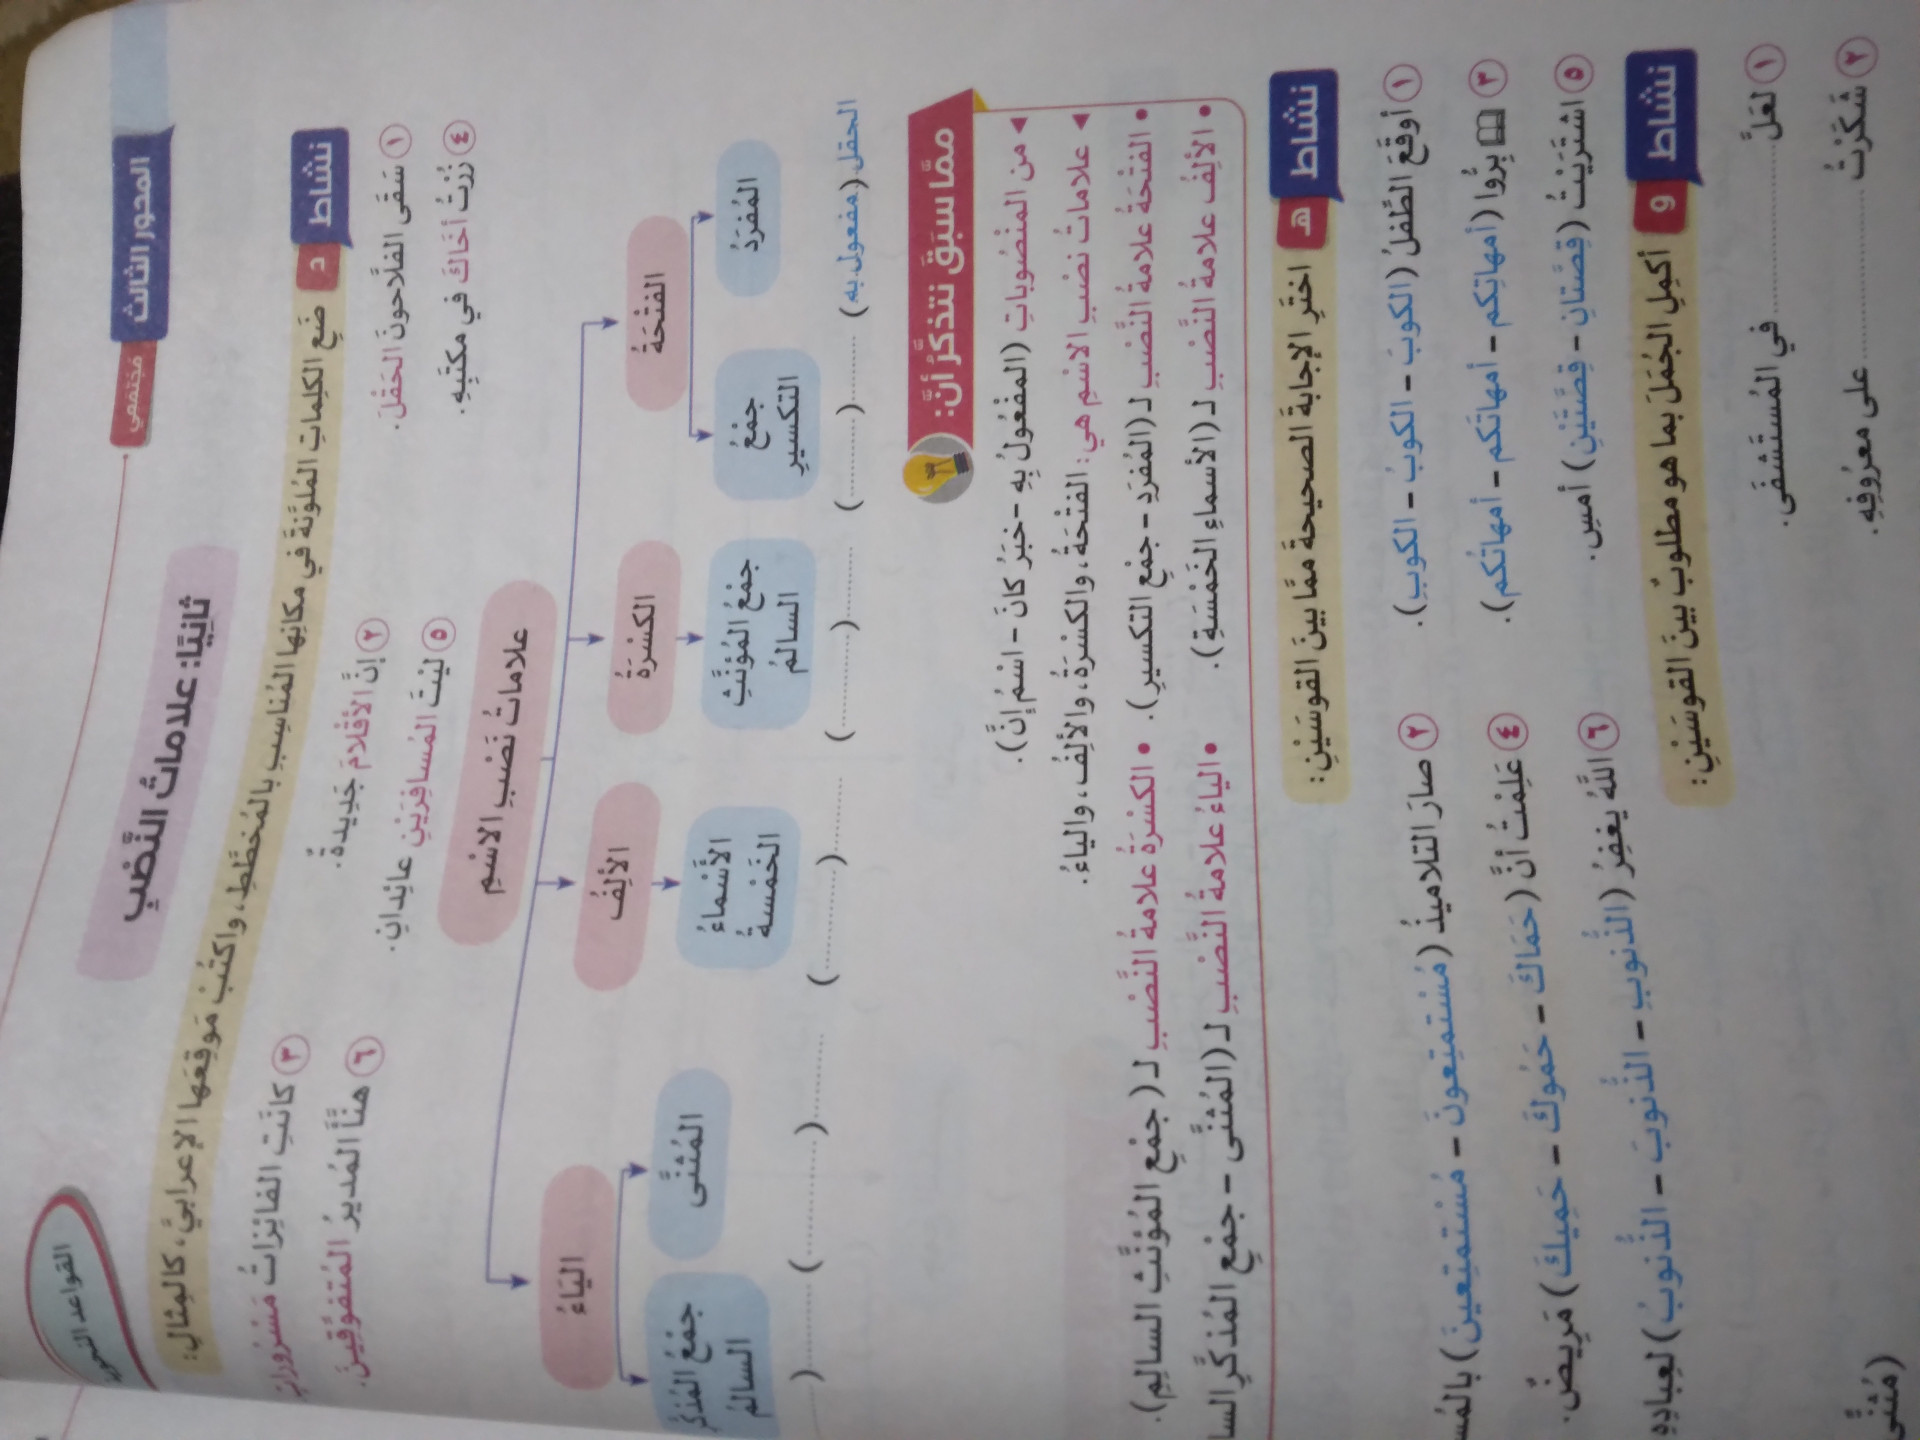 القواعد النحوية
المحور الثالث
مجتمعي
ثانِيًا: علاماتُ النَّصْبِ
نشاط د ضَعِ الكلِماتِ المُلوَّنةَ في مكانِها المُناسِبِ بالمُخطَّطِ، واكتُبْ مَوقِعَها الإعرابيَّ، كالمِثالِ:
١ سَقَى الفلَّاحونَ الحَقْلَ. ٢ إنَّ الأقْلامَ جَدِيدةٌ. ٣ كانَتِ الفائِزاتُ مَسْرُوراتٍ
٤ زُرْتُ أخَاكَ في مكتَبِهِ. ٥ ليْتَ المُسافِرَيْنِ عائِدانِ. ٦ هنَّأَ المُديرُ المُتفوِّقِينَ.
علاماتُ نَصْبِ الاسْمِ
الفتْحَةُ الكسْرَةُ الألِفُ اليَاءُ
المُفرَدُ جمْعُ التكسيرِ جمْعُ المُؤنَّثِ السالمُ الأسْماءُ الخَمْسةُ المُثنَّى جمْعُ المُذكَّرِ السالمُ
الحقل (مفعول به) (..........) (..........) (..........) (..........) (..........)
ممَّا سبَقَ نتذكَّرُ أنَّ:
◄ من المنْصُوباتِ (المفْعُولُ بِهِ - خبَرُ كانَ - اسْمُ إنَّ).
◄ علاماتُ نصْبِ الاسْمِ هي: الفتْحَةُ، والكسْرَةُ، والألِفُ، والياءُ.
• الفتْحَةُ علامةُ النَّصْبِ لـ (المُفرَدِ - جمْعِ التكسيرِ). • الكسْرَةُ علامةُ النَّصْبِ لـ (جمْعِ المُؤنَّثِ السالِمِ).
• الألِفُ علامةُ النَّصْبِ لـ (الأسماءِ الخَمْسَةِ). • الياءُ علامةُ النَّصْبِ لـ (المُثنَّى - جمْعِ المُذكَّرِ السا
نشاط هـ اختَرِ الإجابةَ الصحيحةَ ممَّا بينَ القوسَيْنِ:
١ أوقَعَ الطِّفلُ (الكوبَ - الكوبُ - الكوبِ). ٢ صارَ التلاميذُ (مُسْتمتِعونَ - مُسْتمتِعينَ) بالمُس
٣ بِرُّوا (أمهاتِكم - أمهاتَكم - أمهاتُكم). ٤ عَلِمْتُ أنَّ (حَمَاكَ - حَمُوكَ - حَمِيكَ) مَرِيضٌ.
٥ اشترَيْتُ (قِصَّتانِ - قِصَّتَيْنِ) أمسِ. ٦ اللَّهُ يغفِرُ (الذُّنوبِ - الذُّنوبَ - الذُّنوبُ) لعِبادِهِ
نشاط و أكمِلِ الجُمَلَ بما هو مطلوبٌ بينَ القوسَيْنِ:
١ لعَلَّ .................... في المُستَشفَى.
٢ شكَرْتُ .................... على معرُوفِهِ. (مُثنَّى